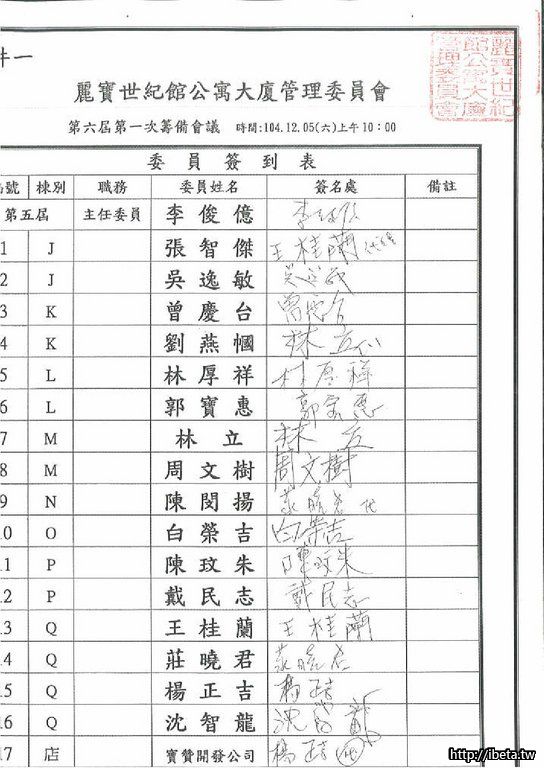 件一
麗寶世紀館公寓大廈管理委員會
麗寶世紀館公寓大廈管理委員會
第六屆第一次籌備會議 時間:104.12.05(六)上午10:00
委員簽到表
號 棟別 職務 委員姓名 簽名處 備註
第五屆 主任委員 李俊億 李俊億
1 J 張智傑 王桂蘭 代
2 J 吳逸敏 吳逸敏
3 K 曾慶台 曾慶台
4 K 劉燕幗 林立代
5 L 林厚祥 林厚祥
6 L 郭寶惠 郭宝惠
7 M 林立 林立
8 M 周文樹 周文樹
9 N 陳閔揚 莊曉君 代
10 O 白榮吉 白榮吉
11 P 陳玟朱 陳玟朱
12 P 戴民志 戴民志
13 Q 王桂蘭 王桂蘭
14 Q 莊曉君 莊曉君
15 Q 楊正吉 楊正吉
16 Q 沈智龍 沈智龍
17 店 寶贊開發公司 楊正吉 代
http://ibeta.tw